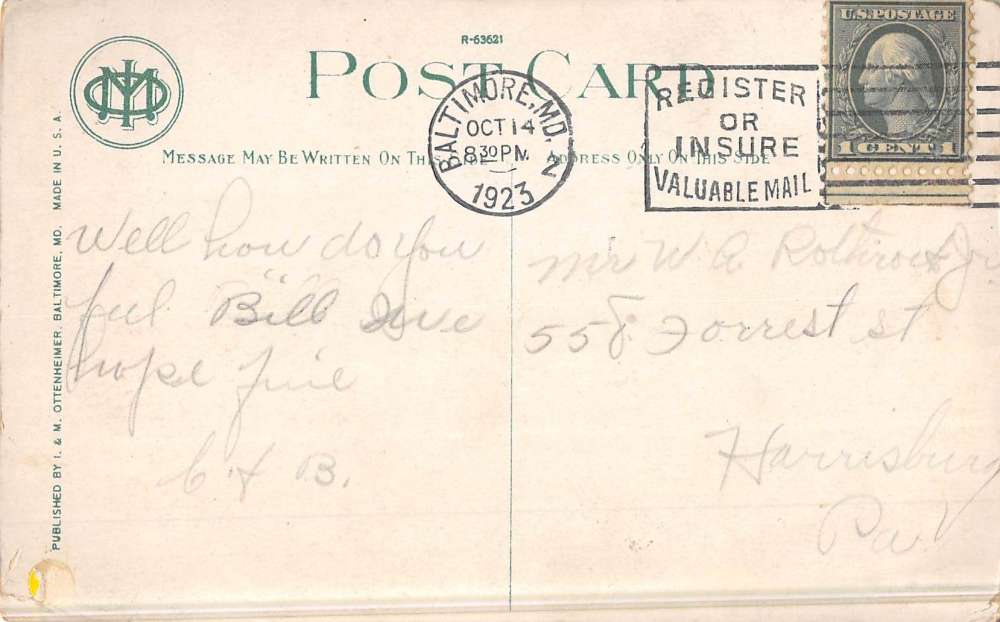 R-63621
POST CARD
MESSAGE MAY BE WRITTEN ON THIS SIDE
ADDRESS ONLY ON THIS SIDE
BALTIMORE, MD. 2
OCT 14
8 30 PM.
1923
REGISTER
OR
INSURE
VALUABLE MAIL
U.S. POSTAGE
1 CENT 1
PUBLISHED BY I. & M. OTTENHEIMER, BALTIMORE, MD. MADE IN U. S. A.
Well how do you
feel Bill
hope fine
C & B.
Mr W A Rothrock Jr
558 Forrest st
Harrisburg
Pa